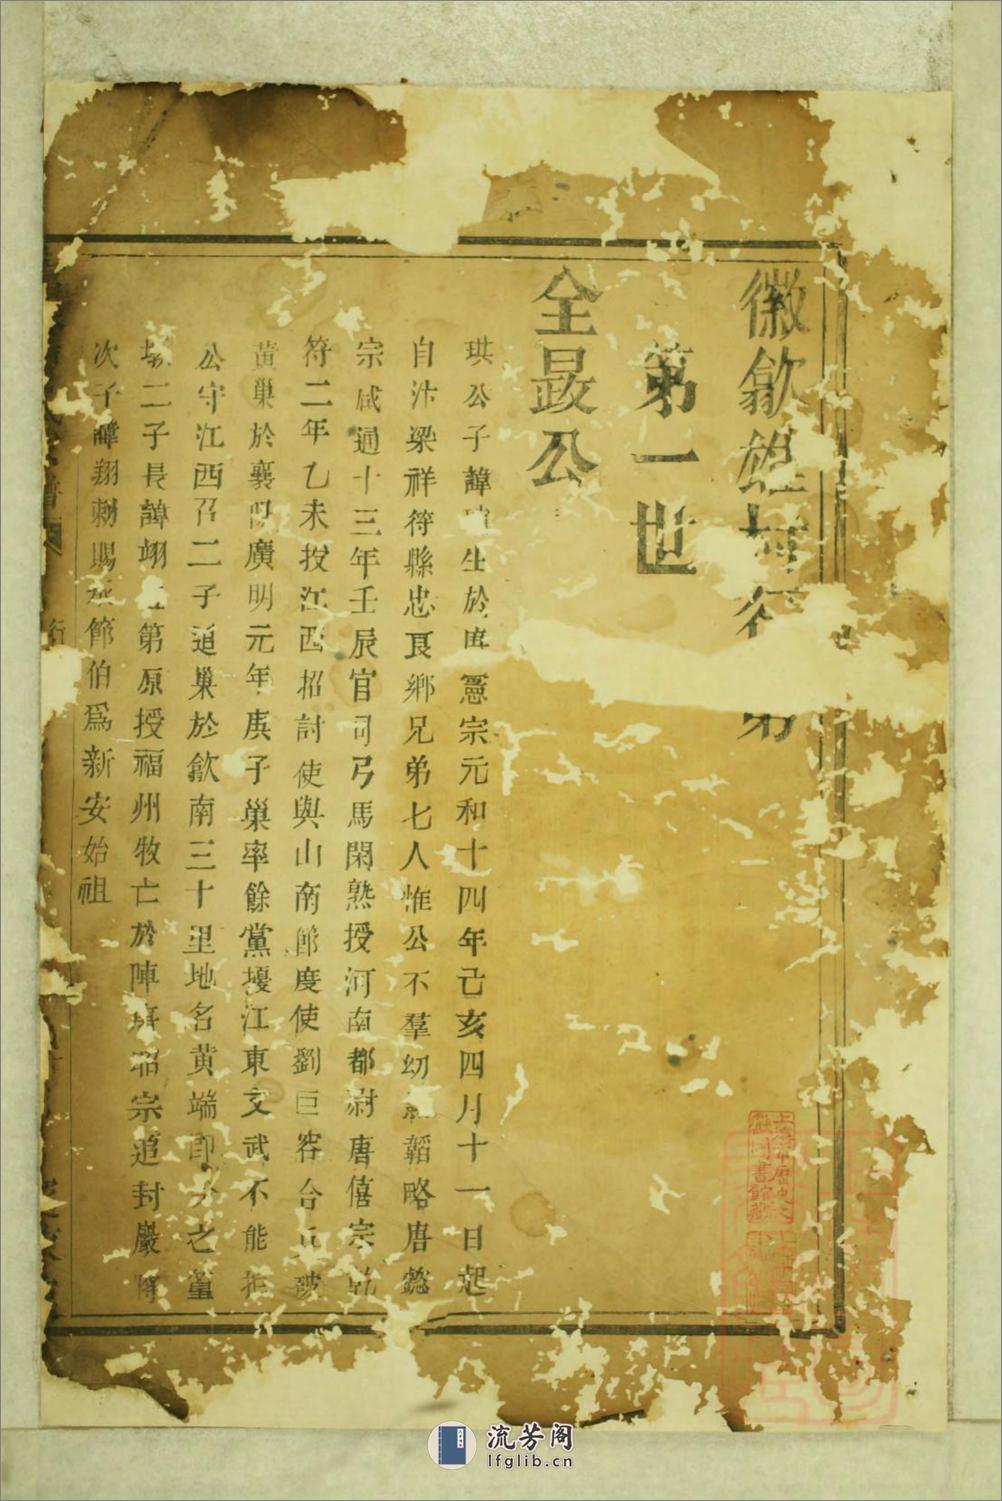 徽歙雄村行第
第一世
全晸公
珙公子諱 生於唐憲宗元和十四年己亥四月十一日起
自汴梁祥符縣忠良鄉兄弟七人惟公不羣幼 韜略唐懿
宗咸通十三年壬辰官司弓馬閑熟授河南都尉唐僖宗乾
符二年乙未投江西招討使與山南節度使劉巨容合兵破
黃巢於襄陽廣明元年庚子巢率餘黨擾江東文武不能拒
公守江西召二子追巢於歙南三十里地名黃端即 之
二子長諱翊 第原授福州牧亡於陣唐昭宗追封嚴
次子諱翔勅賜 節伯為新安始祖
行
上海市歷史文獻圖書館藏
流芳阁
lfglib.cn